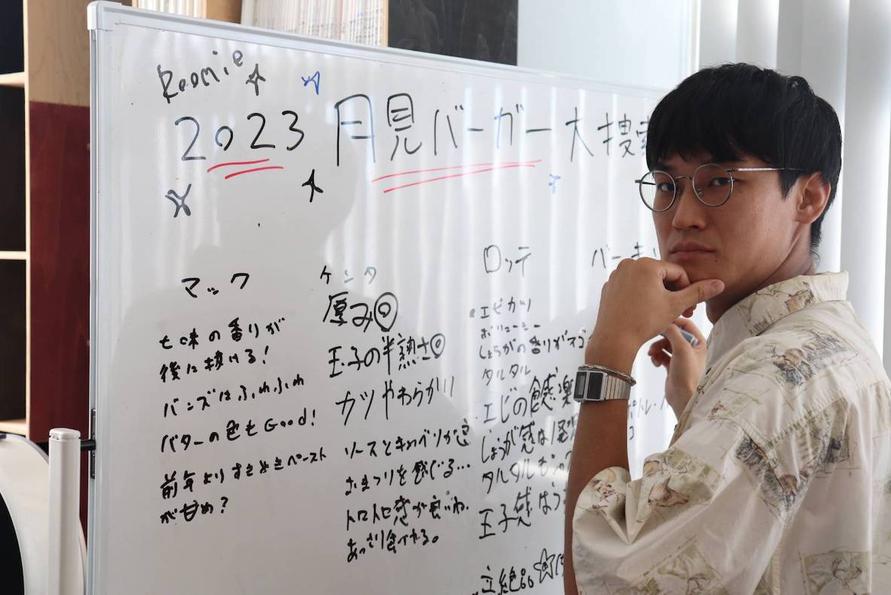 Roomie
2023 月見バーガー大捜索
マック
七味の香りが
後に抜ける!
バンズはふわふわ
バターの色もGood!
前年よりすきやきペースト
が甘め?
ケンタ
厚み◎
玉子の半熟さ◎
カツやわらかい
ソースとキャベツが
おまつりを感じる…
トロトロ感が良いね
あっさり食べれる。
ロッテ
エビカツ
ボリューミー
しょうがの香りが
タルタル
エビの食感
しょうが感は
タルタル
玉子感は
絶品
バーキン